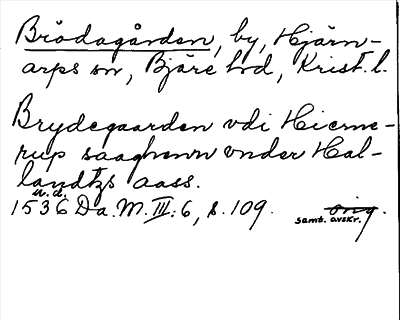 Brödagården, by, Hjärn-
arps sn, Bjäre hd, Krist. l.
Brydegaarden vdi Hierne-
rup saaghenn vnder Hal-
landtzs aass.
u. d.
1536 Da. M. III: 6, s. 109. orig.
samt. avskr.